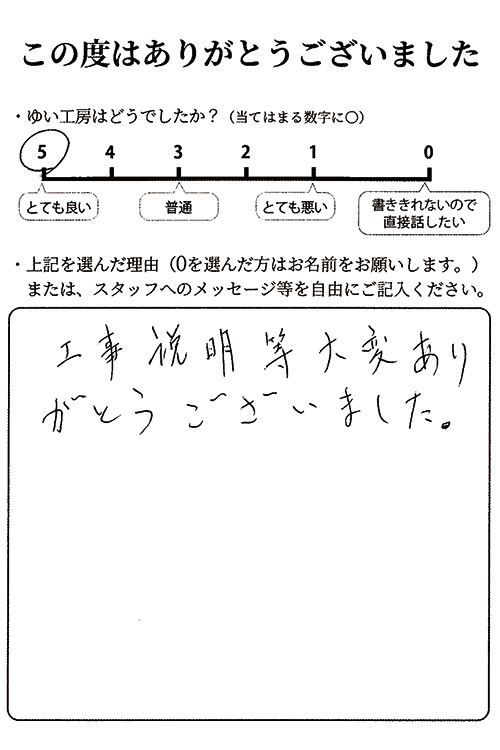 この度はありがとうございました
・ゆい工房はどうでしたか？（当てはまる数字に〇）
5 4 3 2 1 0
とても良い 普通 とても悪い 書ききれないので
直接話したい
・上記を選んだ理由（0を選んだ方はお名前をお願いします。）
または、スタッフへのメッセージ等を自由にご記入ください。
工事説明等大変あり
がとうございました。